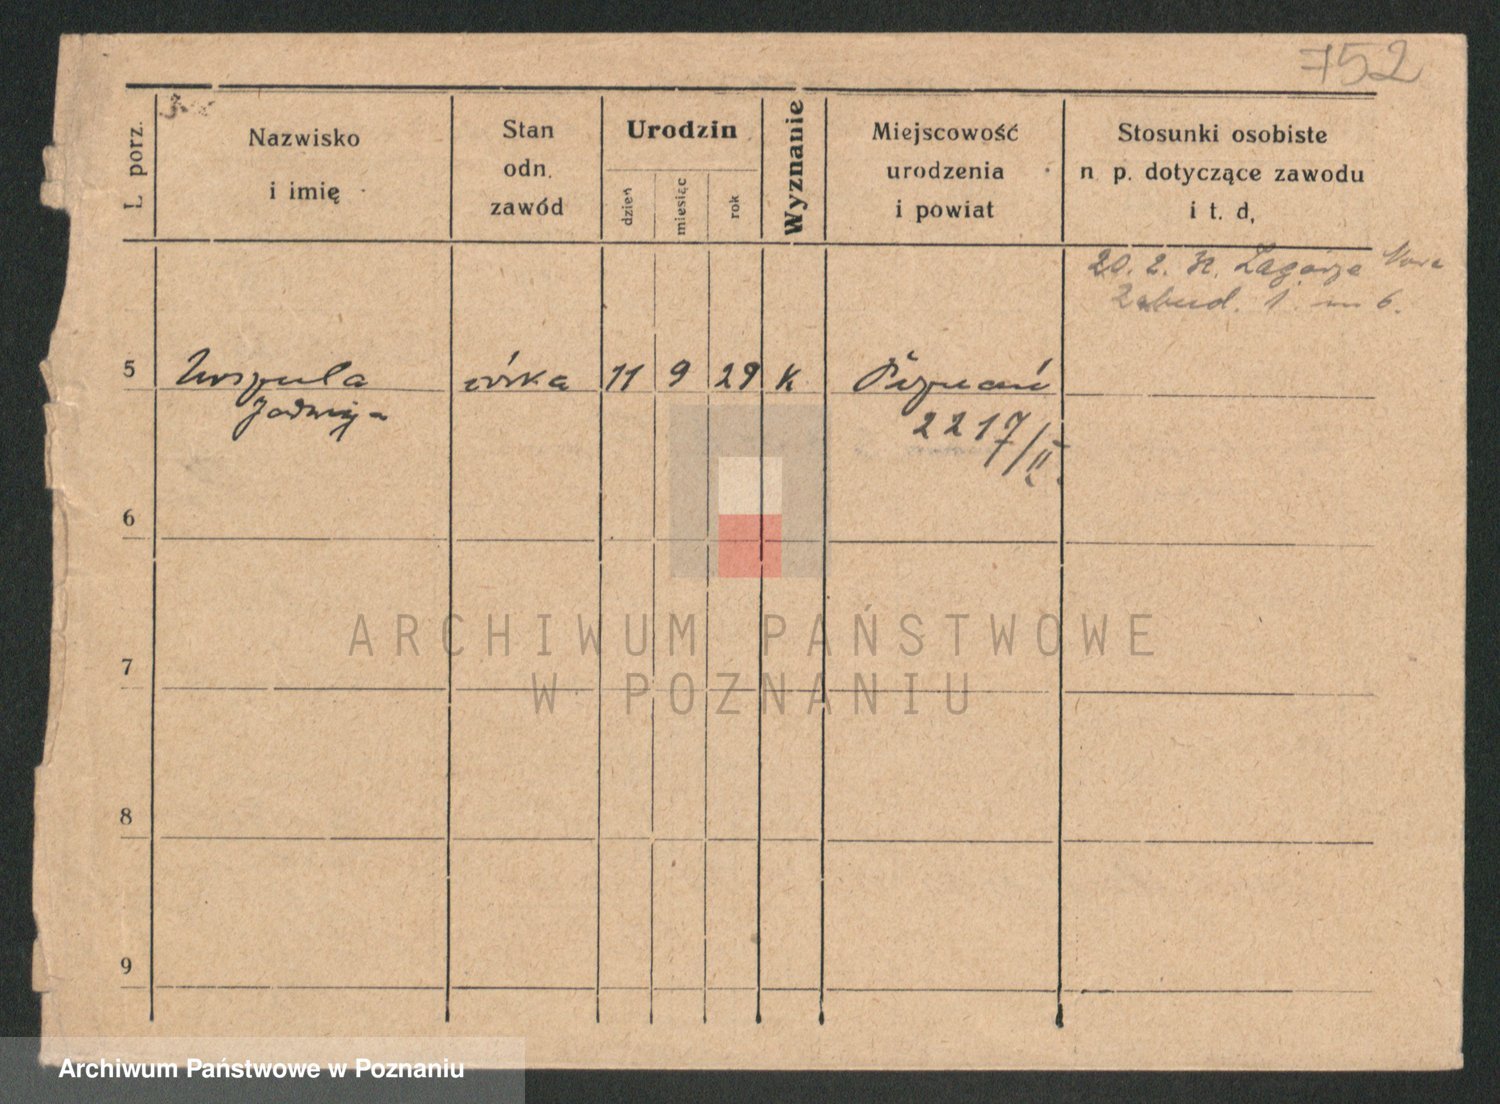 752
L. porz.
Nazwisko
i imię
Stan
odn.
zawód
Urodzin
dzień
miesiąc
rok
Wyznanie
Miejscowość
urodzenia
i powiat
Stosunki osobiste
n p. dotyczące zawodu
i t. d,
20. 2. Zagórze
1. m 6.
5 Urszula córka 11 9 29 K Poznań
Jadwiga
2217/II.
6
ARCHIWUM PAŃSTWOWE
7
W POZNANIU
8
9
Archiwum Państwowe w Poznaniu